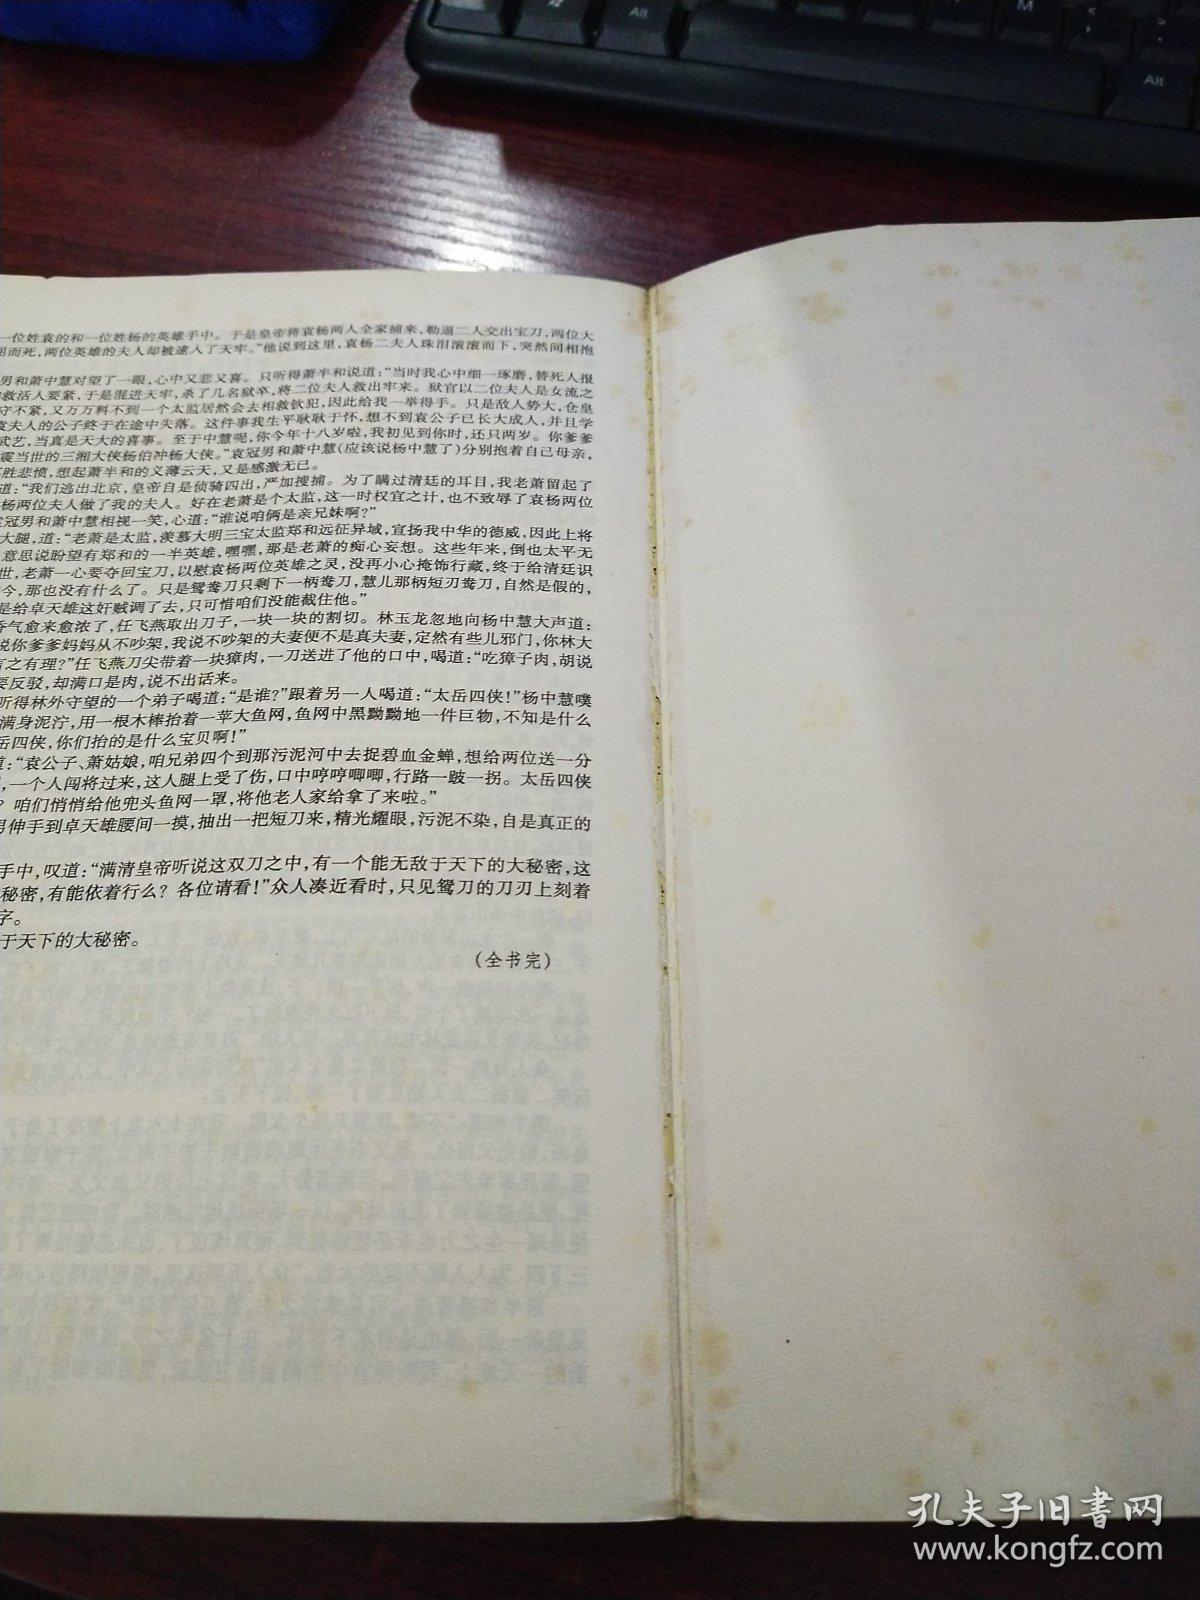 一位姓袁的和一位姓杨的英雄手中。于是皇帝将袁杨两人全家捕来，勒逼二人交出宝刀，两位大
屈而死，两位英雄的夫人却被逮入了天牢。”他说到这里，袁杨二夫人珠泪滚滚而下，突然间相抱
男和萧中慧对望了一眼，心中又悲又喜。只听得萧半和说道：“当时我心中细一琢磨，替死人报
救活人要紧，于是混进天牢，杀了几名狱卒，将二位夫人救出牢来。狱官以二位夫人是女流之
守不紧，又万万料不到一个太监居然会去相救钦犯，因此给我一举得手。只是敌人势大，仓皇
袁夫人的公子终于在途中失落。这件事我生平耿耿于怀，想不到袁公子已长大成人，并且学
武艺，当真是天大的喜事。至于中慧呢，你今年十八岁啦，我初见到你时，还只两岁。你爹爹
震当世的三湘大侠杨伯冲杨大侠。”袁冠男和萧中慧（应该说杨中慧了）分别抱着自己母亲，
胜悲愤，想起萧半和的义薄云天，又是感激无已。
道：“我们逃出北京，皇帝自是侦骑四出，严加搜捕。为了瞒过清廷的耳目，我老萧留起了
杨两位夫人做了我的夫人。好在老萧是个太监，这一时权宜之计，也不致辱了袁杨两位
袁冠男和萧中慧相视一笑，心道：“谁说咱俩是亲兄妹啊？”
大腿，道：“老萧是太监，羡慕大明三宝太监郑和远征异域，宣扬我中华的德威，因此上将
意思说盼望有郑和的一半英雄，嘿嘿，那是老萧的痴心妄想。这些年来，倒也太平无
世，老萧一心要夺回宝刀，以慰袁杨两位英雄之灵，没再小心掩饰行藏，终于给清廷识
今，那也没有什么了。只是鸳鸯刀只剩下一柄鸯刀，慧儿那柄短刃鸳刀，自然是假的，
是给卓天雄这奸贼调了去，只可惜咱们没能截住他。”
香气愈来愈浓了，任飞燕取出刀子，一块一块的割切。林玉龙忽地向杨中慧大声道：
说你爹爹妈妈从不吵架，我说不吵架的夫妻便不是真夫妻，定然有些儿邪门，你林大
言之有理？”任飞燕刀尖带着一块獐肉，一刀送进了他的口中，喝道：“吃獐子肉，胡说
要反驳，却满口是肉，说不出话来。
听得林外守望的一个弟子喝道：“是谁？”跟着另一人喝道：“太岳四侠！”杨中慧噗
满身泥泞，用一根木棒抬着一苹大鱼网，鱼网中黑黝黝地一件巨物，不知是什么
岳四侠，你们抬的是什么宝贝啊！”
道：“袁公子、萧姑娘，咱兄弟四个到那污泥河中去捉碧血金蝉，想给两位送一分
，一个人闯将过来，这人腿上受了伤，口中哼哼唧唧，行路一跛一拐。太岳四侠
？咱们悄悄给他兜头鱼网一罩，将他老人家给拿了来啦。”
男伸手到卓天雄腰间一摸，抽出一把短刀来，精光耀眼，污泥不染，自是真正的
手中，叹道：“满清皇帝听说这双刀之中，有一个能无敌于天下的大秘密，这
秘密，有能依着行么？各位请看！”众人凑近看时，只见鸳刀的刀刃上刻着
字。
于天下的大秘密。
（全书完）
孔夫子旧书网
www.kongfz.com
Alt
M
Alt